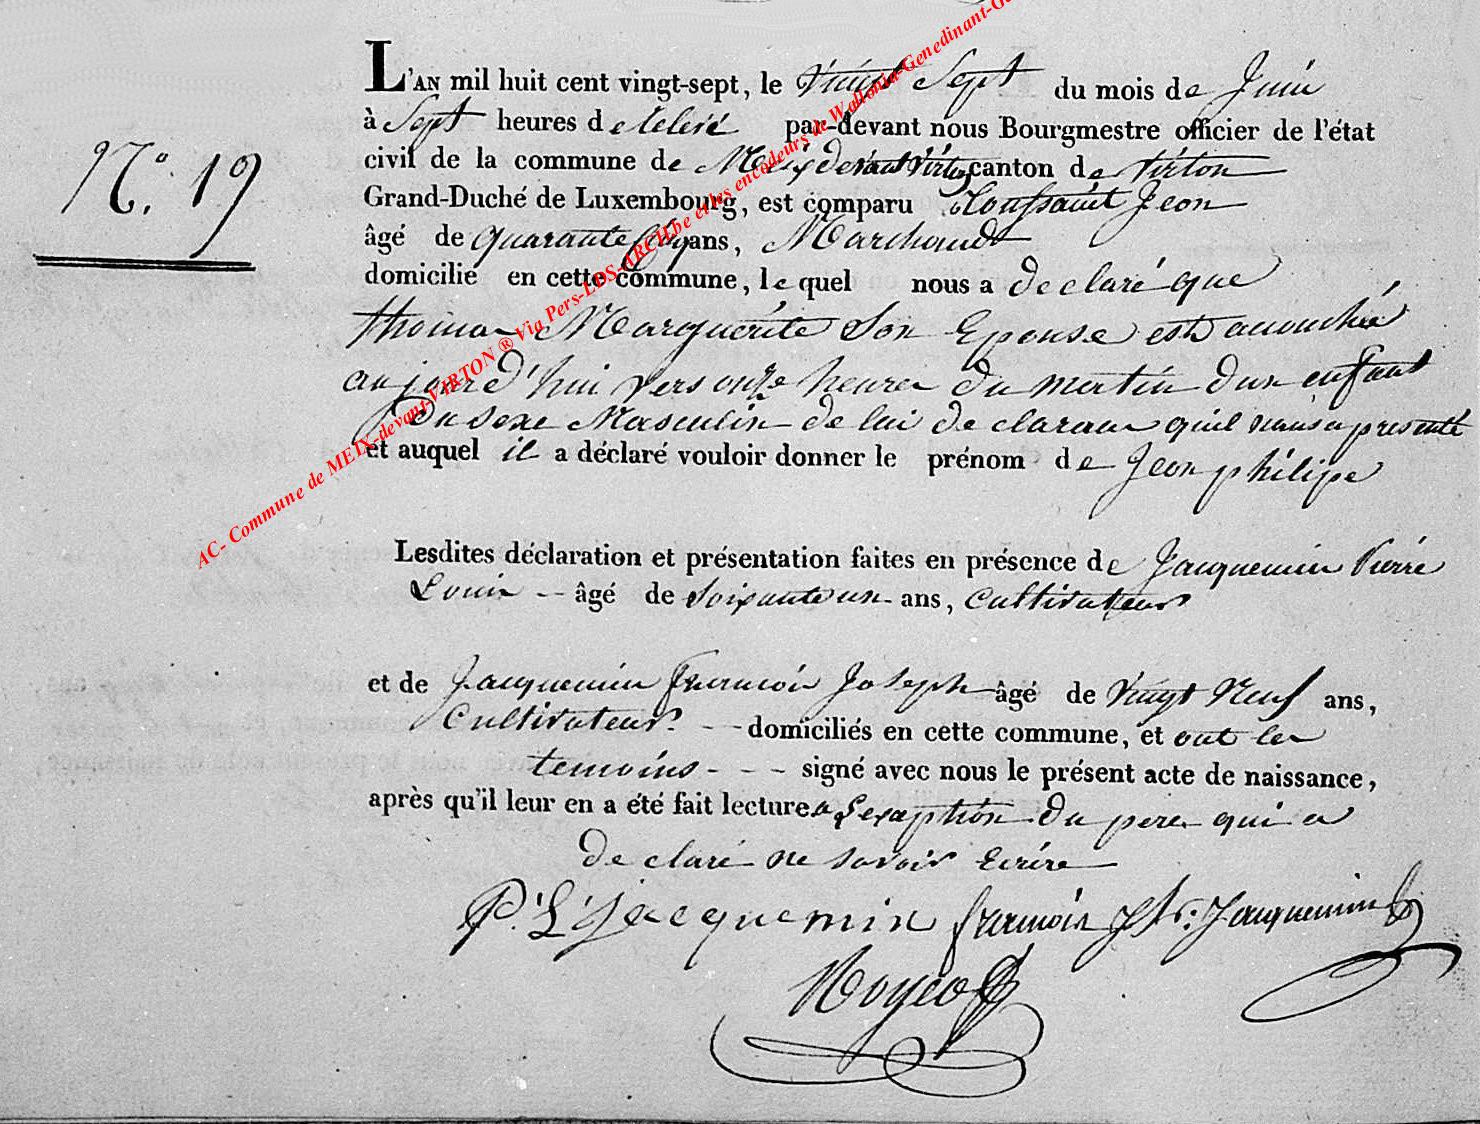 L'AN mil huit cent vingt-sept, le Vingt Sept du mois de Juin
N.° 19
à Sept heures de relevé par-devant nous Bourgmestre officier de l'état
civil de la commune de Meix Devant Virton canton de Virton
Grand-Duché de Luxembourg, est comparu Toussaint Jean
âgé de quarante ans, Marchand
domicilié en cette commune, le quel nous a declaré que
thomas Marguérite Son Epouse est acouchée
aujourd'hui vers onze heures du matin dun enfant
Du sexe Masculin de lui declarant quil nous a presenté
et auquel il a déclaré vouloir donner le prénom de Jean philipe
Lesdites déclaration et présentation faites en présence de Jacquemin Pierre
Louis -- âgé de Soixante un ans, Cultivateur
et de Jacquemin francois Joseph âgé de Vingt Neuf ans,
Cultivateur. -- domiciliés en cette commune, et ont les
temoins - - - signé avec nous le présent acte de naissance,
après qu'il leur en a été fait lecture a Lexception du pere qui a
declaré ne savoir Ecrire
P. L. Jacquemin francois Jh: Jacquemin
AC- Commune de MEIX-devant-VIRTON ® Via Pers-LDS-ARCH.be et les encodeurs de Wallonia-Genedinant-Ge